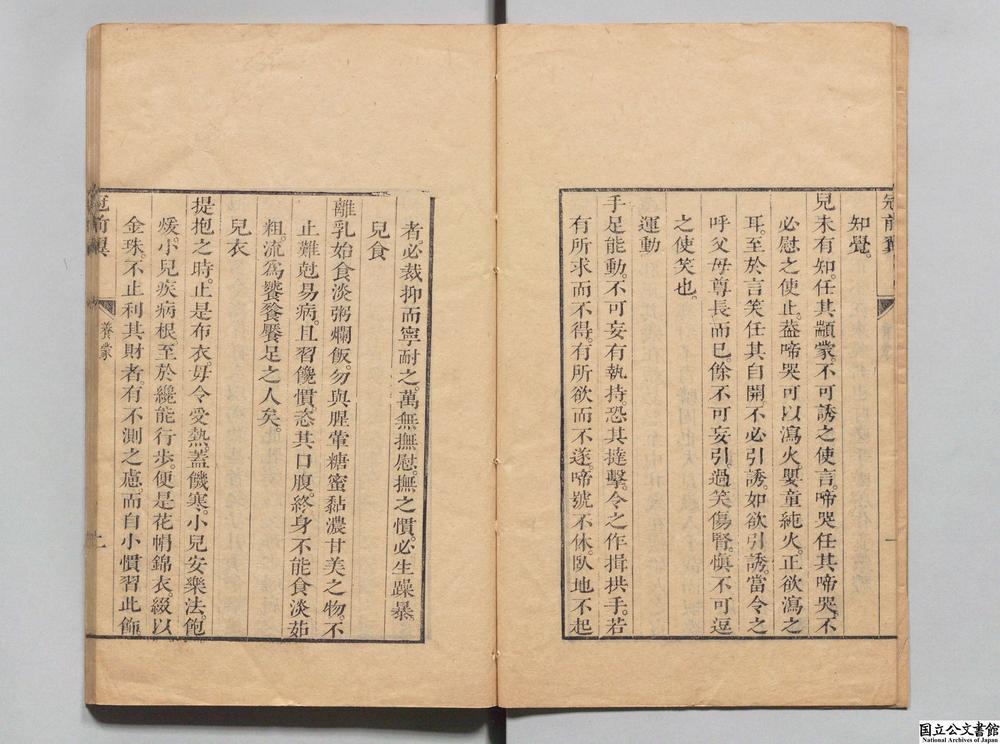 冠前翼
一
知覺。
兒未有知。任其顓蒙。不可誘之使言。啼哭任其啼哭。不
必慰之使止。葢啼哭可以瀉火。嬰童純火。正欲瀉之
耳。至於言笑任其自開。不必引誘。如欲引誘。當令之
呼父母尊長而已。餘不可妄引。過笑傷腎。愼不可逗
之使笑也。
運動
手足能動。不可妄有執持。恐其撻擊。令之作揖拱手。若
有所求而不得。有所欲而不遂。啼號不休。臥地不起
者。必裁抑而寧耐之。萬無撫慰。撫之慣。必生躁暴。
兒食
離乳始食淡粥爛飯。勿與腥葷糖蜜黏濃甘美之物。不
止難尅易病。且習饞慣。恣其口腹。終身不能食淡茹
粗。流爲饕餮饜足之人矣。
兒衣
提抱之時。止是布衣。毋令受熱。蓋饑寒。小兒安樂法。飽
煖。小兒疾病根。至於纔能行步。便是花帽錦衣。綴以
金珠。不止利其財者。有不測之慮。而自小慣習此飾
冠前翼
養蒙
国立公文書館
National Archives of Japan